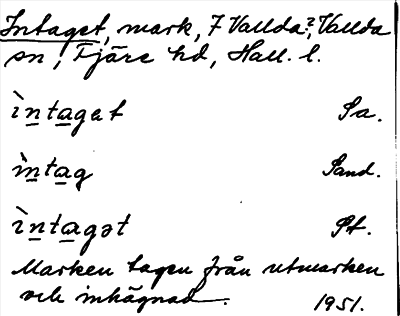 Intaget, mark, 7 Vallda?, Vallda
sn, Fjäre hd, Hall. l.
ìntagat Sa.
ìntag Sand.
ìntagət St.
Marken tagen från utmarken
och inhägnad. 1951.